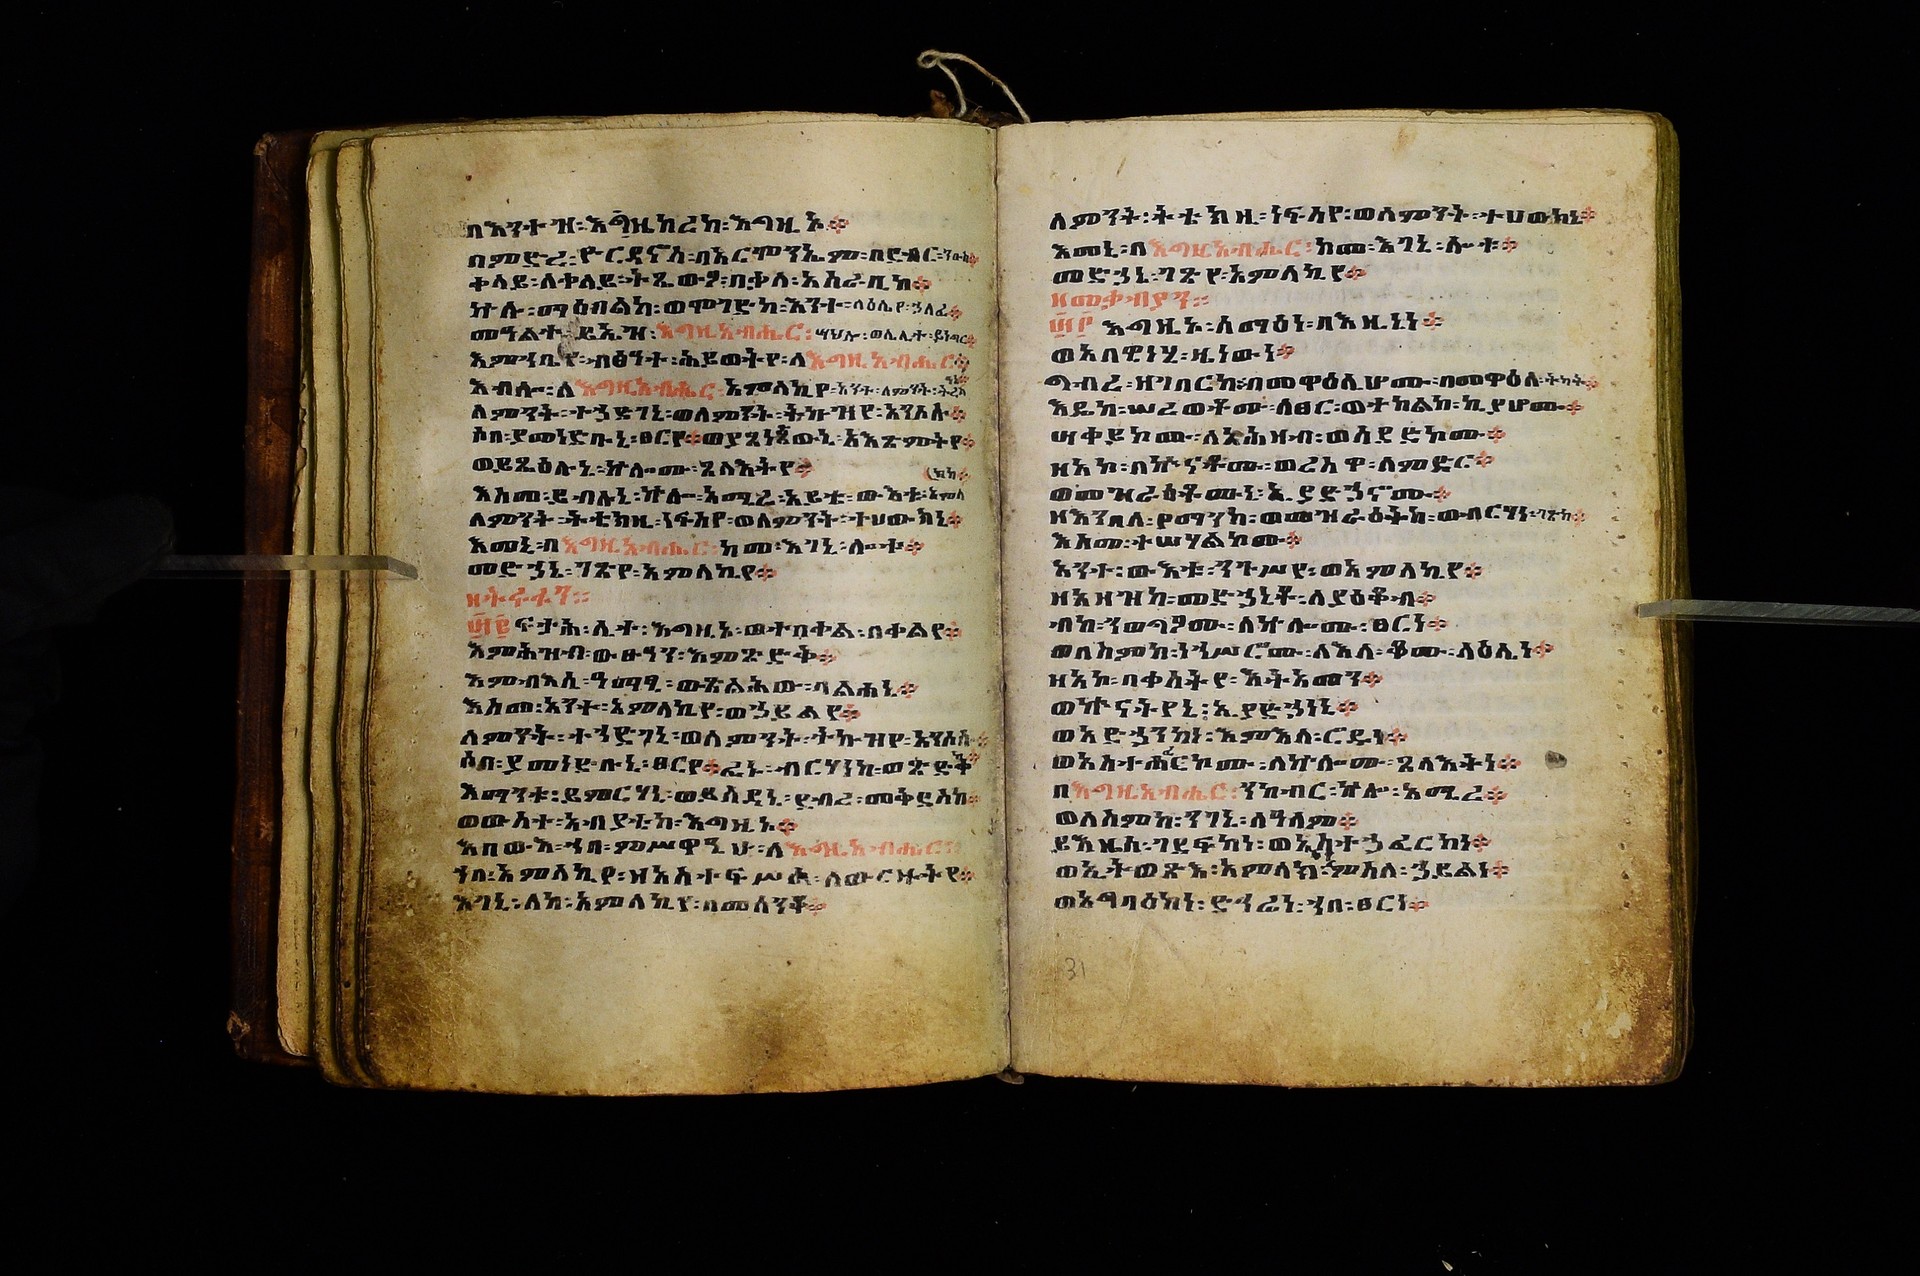 በእንተ፡ዝ፡እዜከረከ፡እግዚኦ፨
በምድረ፡ዮርዳኖስ፡በአርሞንኤም፡በደብር፡ንውኅ፨
ቀላይ፡ለቀላይ፡ትጼውዖ፡በቃለ፡አስራቢከ፨
ኵሉ፡ማዕበልከ፡ወሞገድከ፡እንተ፡ላዕሌየ፡ኃለፈ፨
መዓልተ፡ይኤዝዝ፡እግዚአብሔር፡ሣህሎ፡ወሌሊተ፡ይነግር፨
እምኀቤየ፡ብፅዓተ፡ሕይወትየ፡ለእግዚአብሔር፨
እብሎ፡ለእግዚአብሔር፡አምላኪየ፡አንተ፡ለምንት፡ትረስዐኒ፨
ለምንት፡ተኃድገኒ፡ወለምንት፡ትኩዝየ፡አንሶሱ፨
ሶበ፡ያመነድቡኒ፡ፀርየ፨ወያጸነጽውኒ፡አእጽምትየ፨
ወይጼዕሉኒ፡ኵሎሙ፡ጸላእትየ፨
እስመ፡ይብሉኒ፡ኵሎ፡አሚረ፡አይቴ፡ውእቱ፡አምላ(ክከ፨
ለምንት፡ትቴክዚ፡ነፍስየ፡ወለምንት፡ተሀውክኒ፨
እመኒ፡በእግዚአብሔር፡ከመ፡እገኒ፡ሎቱ፨
መድኃኔ፡ገጽየ፡አምላኪየ፨
ዘትሩፋን፡፡
፵፪ ፍታሕ፡ሊተ፡እግዚኦ፡ወተበቀል፡በቀልየ፨
እምሕዝብ፡ውፁዓን፡እምጽድቅ፨
እምብእሲ፡ዓማፂ፡ወጽልሕው፡ባልሐኒ፨
እስመ፡አንተ፡አምላኪየ፡ወኃይልየ፨
ለምንት፡ተኃድገኒ፡ወለምንት፡ትኩዝየ፡አንሶሱ፨
ሶበ፡ያመነድቡኒ፡ፀርየ፨ፈኑ፡ብርሃነከ፡ወጽድቀከ፨
እማንቱ፡ይምርሃኒ፡ወይስዳኒ፡ደብረ፡መቅደስከ፨
ወውስተ፡አብያቲከ፡እግዚኦ፨
እበውእ፡ኀበ፡ምሥዋዒሁ፡ለእግዚአብሔር፨
ኀበ፡አምላኪየ፡ዘአስተፍሥሓ፡ለውርዙትየ፨
እገኒ፡ለከ፡አምላኪየ፡በመሰንቆ፨
ለምንት፡ትቴክዚ፡ነፍስየ፡ወለምንት፡ተሀውክኒ፨
እመኒ፡በእግዚአብሔር፡ከመ፡እገኒ፡ሎቱ፨
መድኃኔ፡ገጽየ፡አምላኪየ፨
ዘመቃብያን፡፡
፵፫ እግዚኦ፡ሰማዕነ፡በእዘኒነ፨
ወአበዊነሂ፡ዜነውነ፨
ግብረ፡ዘገበርከ፡በመዋዕሊሆሙ፡በመዋዕለ፡ትካት፨
እዴከ፡ሠረወቶሙ፡ለፀር፡ወተከልከ፡ኪያሆሙ፨
ሣቀይኮሙ፡ለአሕዛብ፡ወሰደድኮሙ፨
ዘአኮ፡በኵናቶሙ፡ወረስዋ፡ለምድር፨
ወመዝራዕቶሙኒ፡ኢያድኃኖሙ፨
ዘእንበለ፡የማንከ፡ወመዝራዕትከ፡ወብርሃነ፡ገጽከ፨
እስመ፡ተሣሃልኮሙ፨
አንተ፡ውእቱ፡ንጉሥየ፡ወአምላኪየ፨
ዘአዘዝከ፡መድኃኒቶ፡ለያዕቆብ፨
ብከ፡ንወግዖሙ፡ለኵሎሙ፡ፀርነ፨
ወበስምከ፡ነኀሥሮሙ፡ለእለ፡ቆሙ፡ላዕሌነ፨
ዘአኮ፡በቀስትየ፡እትአመን፨
ወኵናትየኒ፡ኢያድኃነኒ፨
ወአድኃንከነ፡እምእለ፡ሮዱነ፨
ወአስተኃፈርኮሙ፡ለኵሎሙ፡ጸላእትነ፨
በእግዚአብሔር፡ንከብር፡ኵሎ፡አሚረ፨
ወለስምከ፡ንገኒ፡ለዓለም፨
ይእዜሰ፡ገደፍከነ፡ወአስተኃፈርከነ፨
ወኢትወጽእ፡አምላክነ፡ምስለ፡ኃይልነ፨
ወአግባዕከነ፡ድኅሬነ፡ኀበ፡ፀርነ፨
31